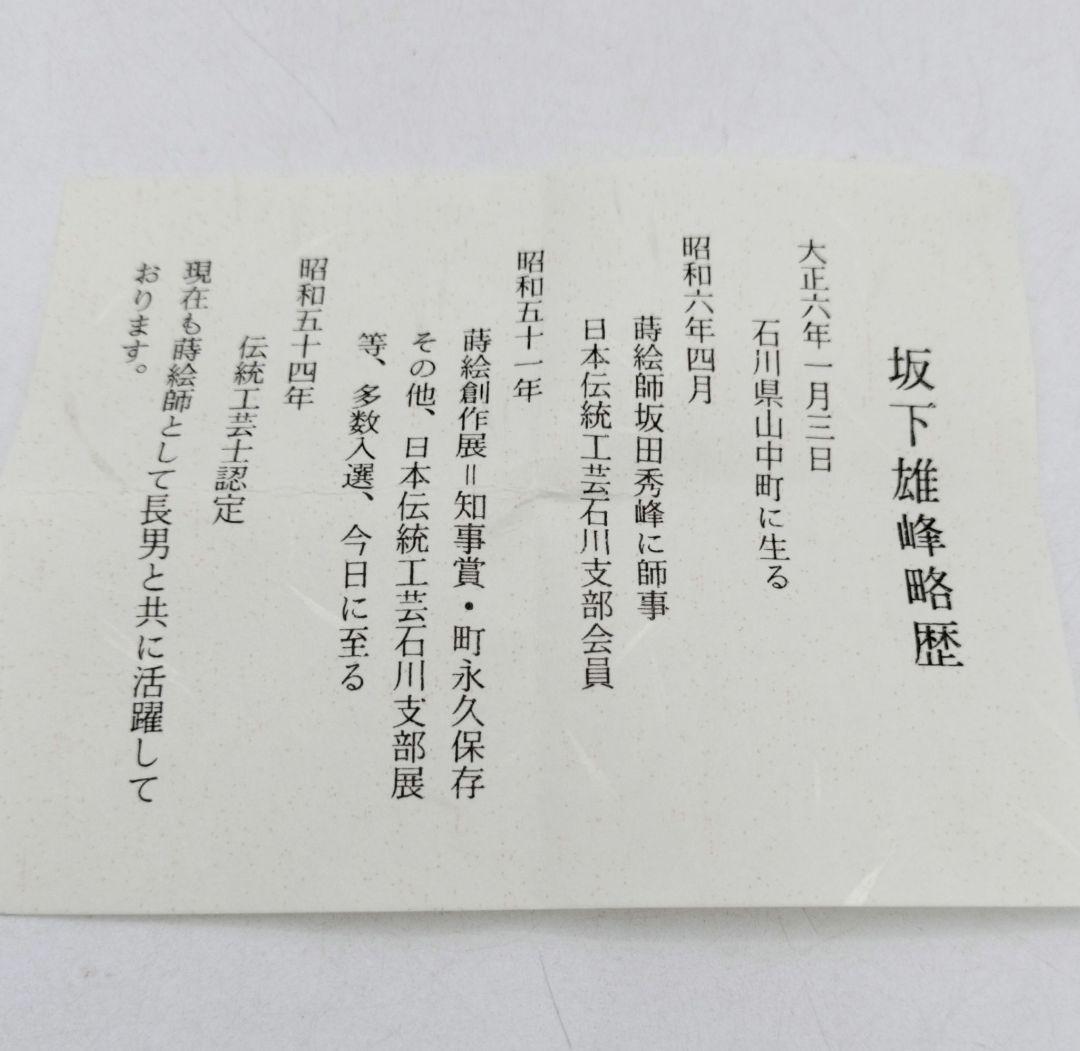 坂下雄峰略歴
大正六年一月三日
石川県山中町に生る
昭和六年四月
蒔絵師坂田秀峰に師事
日本伝統工芸石川支部会員
昭和五十一年
蒔絵創作展＝知事賞・町永久保存
その他、日本伝統工芸石川支部展
等、多数入選、今日に至る
昭和五十四年
伝統工芸士認定
現在も蒔絵師として長男と共に活躍して
おります。